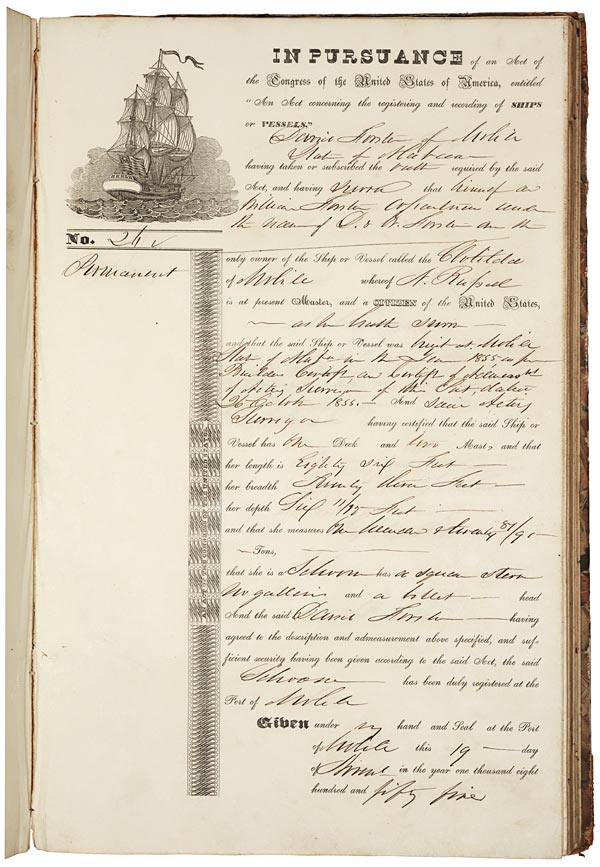 IN PURSUANCE of an Act of
the Congress of the United States of America, entitled
"An Act concerning the registering and recording of SHIPS
or VESSELS,"
of Mobile
State of
having taken or subscribed the oath required by the said
Act, and having that himself and
William
the name of D. & W. are the
No. 26
Permanent
only owner of the Ship or Vessel called the Clotilda
of Mobile whereof A. Russel
is at present Master, and a CITIZEN of the United States,
as he hath sworn
and that the said Ship or Vessel was built at Mobile
State of in the Year 1855 as per
Builders
of Acting Surveyor of this Port, dated
October 1855. And said Acting
Surveyor having certified that the said Ship or
Vessel has One Deck and two Masts and that
her length is Eighty six Feet
her breadth Feet
her depth Six Feet
and that she measures One Hundred & twenty
Tons,
that she is a Schooner has a square stern
No galleries and a billet head
And the said having
agreed to the description and admeasurement above specified, and suf-
ficient security having been given according to the said Act, the said
Schooner has been duly registered at the
Port of Mobile
Given under my hand and Seal at the Port
of Mobile this 19 day
of in the year one thousand eight
hundred and fifty five